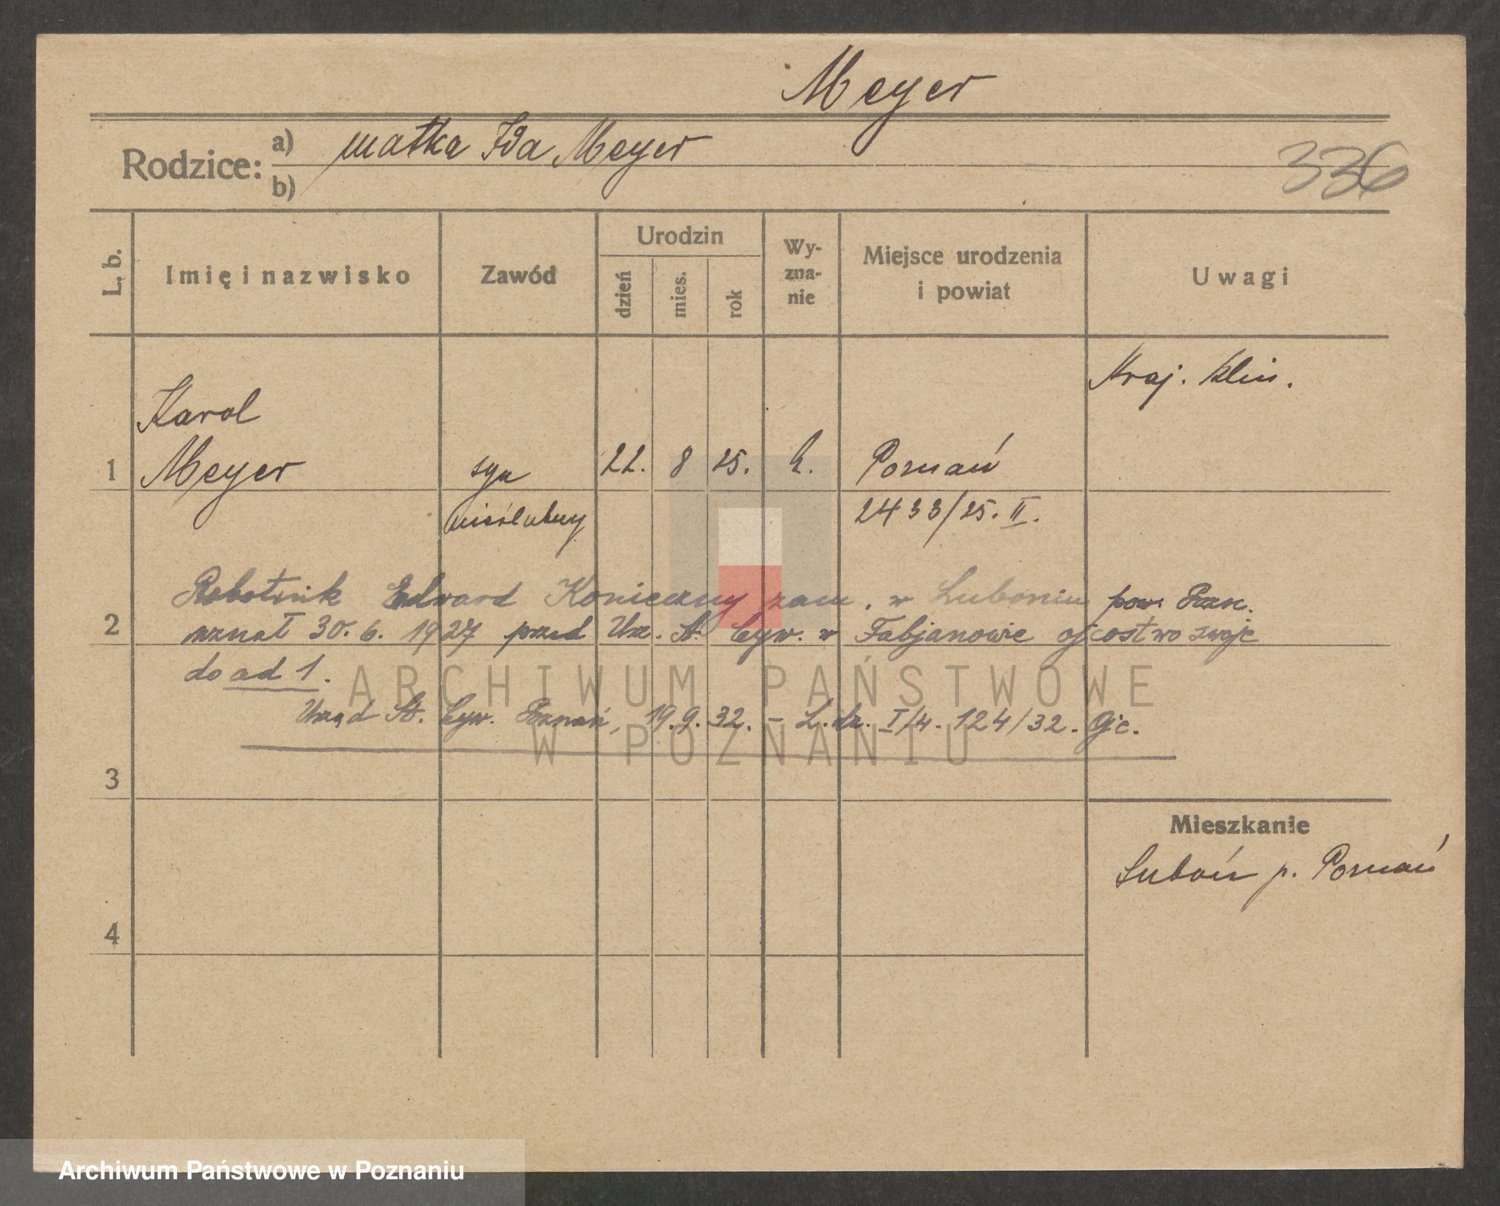 Meyer
Rodzice:
a) matka Ida Meyer
b)
336
L. b.
Imię i nazwisko
Zawód
Urodzin
dzień
mies.
rok
Wy-
zna-
nie
Miejsce urodzenia
i powiat
Uwagi
Kraj. klin.
Karol
1 Meyer syn 22. 8 25. Poznań
nieślubny 2433/25. II.
Robotnik Edward Konieczny zam. w Luboniu pow. Pozn.
2 uznał 30. 6. 1927 przed Urz. St. Cyw. w Fabjanowie ojcostwo swoje
do ad 1.
ARCHIWUM PAŃSTWOWE
Urząd St. Cyw. Poznań, 19. 9. 32. - L. dz. I/4. 124/32.
W POZNANIU
3
Mieszkanie
Luboń p. Poznań
4
Archiwum Państwowe w Poznaniu